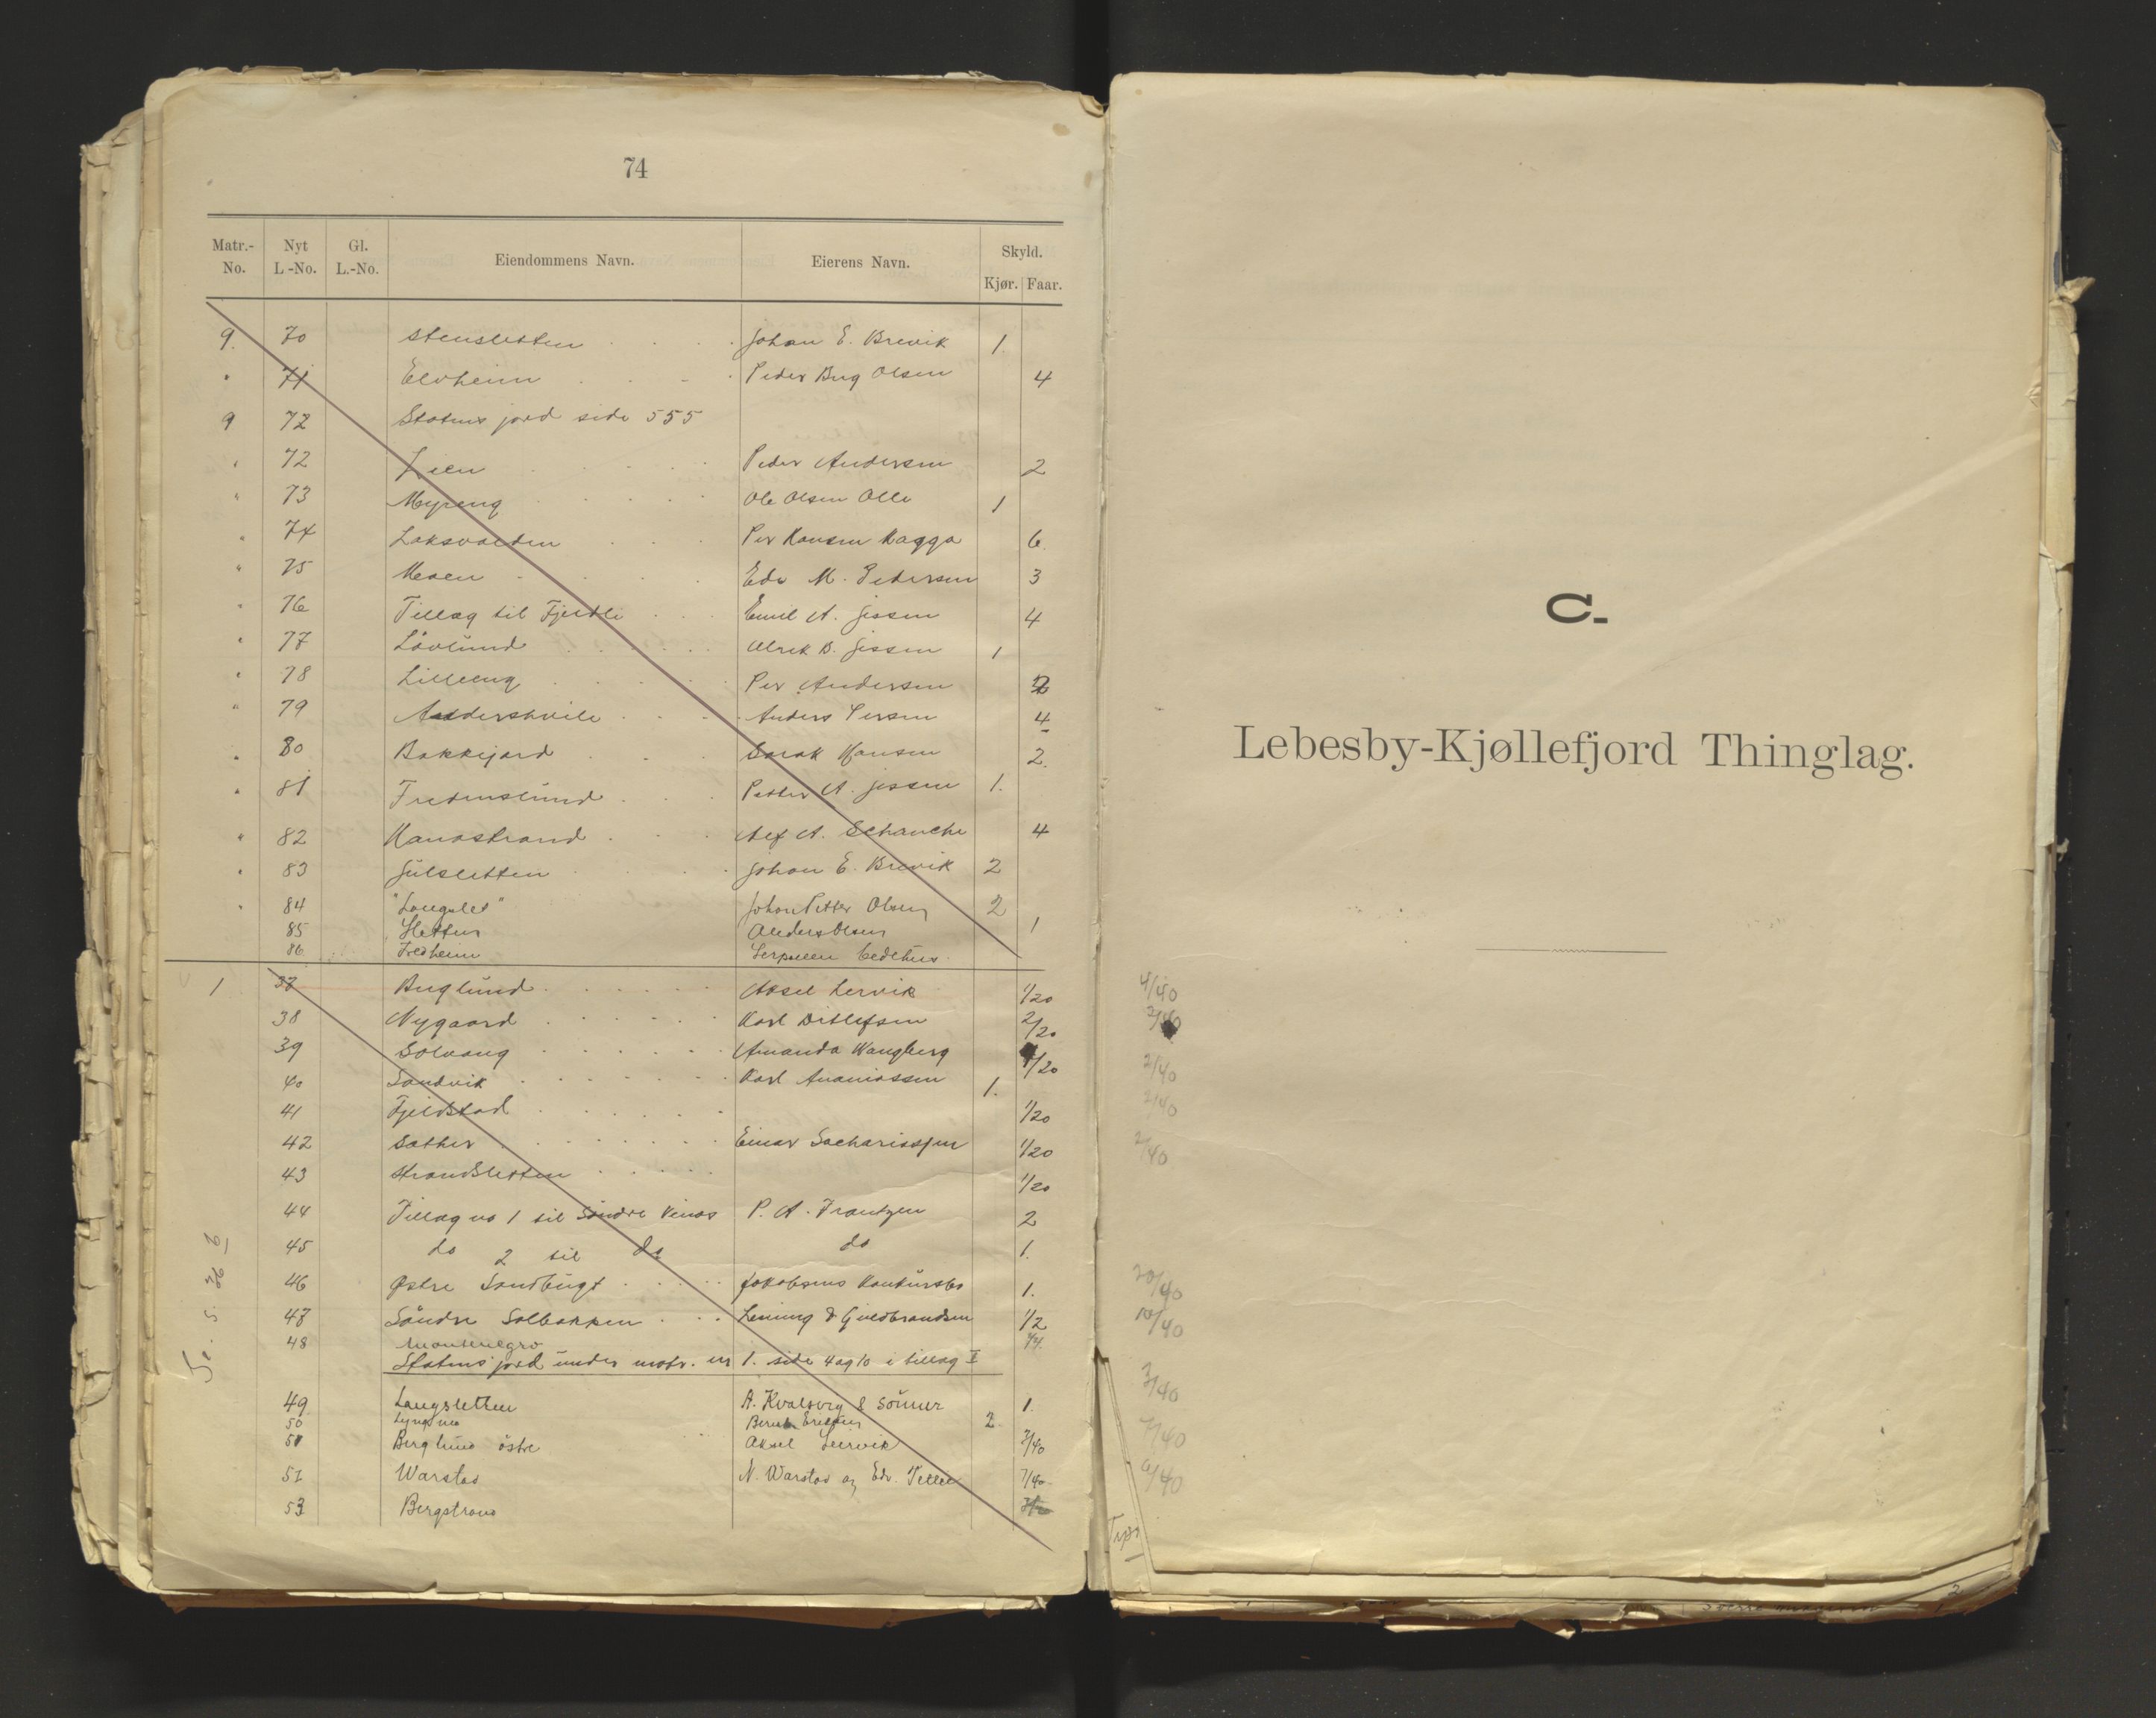 74
Matr.-No. Nyt L-No. Gl. L.-No. Eiendommens Navn. Eierens Navn. Skyld. Kjør. Faar.
9. 70 Stensletten Johan E. Brevik 1
" 71 Elvheim Peder Bug Olsen 4
9 72 Statens jord side 555
" 72 Lien Peder Andersen 2
" 73 Myreng Ole Olsen 1
" 74 Laksvolden Per Hansen Kagga 6
" 75 Moen Edv M. Pedersen 3
" 76 Tillæg til Fjeldli Emil A. Jessen 4
" 77 Lövlund Ulrik B. Jessen 1
" 78 Lilleeng Per Andersen
" 79 Anders Persen 4
" 80 Bakkejord Sarak Hansen 2.
" 81 Fredenslund Petter A. Jessen 1.
" 82 Alf A. Schanche 4
" 83 Julsletten Johan E. Brevik 2
" 84 "Langslet" Johan Petter Olsen 2
85 Sletten Anders Olsen 1
86 Fredheim bedehus
1 37 Berglund Aksel Lervik 1/20
38 Nygaard Karl Ditlefsen 2/20
39 Solvang Amanda Wangberg 1/20
40 Sandvik Karl Ananiassen 1.
41 Fjeldstad 1/20
42 Sæther Einar Sachariassen 1/20
43 Strandsletten 1/20
44 Tillæg no 1 til Söndre P. A. Frantzen 2
45 do 2 til do do 1.
46 Østre Sandbugt Jakobsens Konkursbo 1.
47 Söndre Solbakken & Guldbrandsen 1/2
48 Montenegro
Statens jord under matr. nr 1. side 4 og 10 i tillæg II
49 Langsletten A. Kvalsvig & Sönner 1.
50 Lyngmo Bernt Eriksen 2
51 Berglund östre Aksel Leirvik 3/40
52 Warstad N. Warstad og Edv. 7/40
53 Bergstrand
C.
Lebesby-Kjøllefjord Thinglag.
4/40
2/40
2/40
2/40
2/40
20/40
10/40
3/40
7/40
6/40